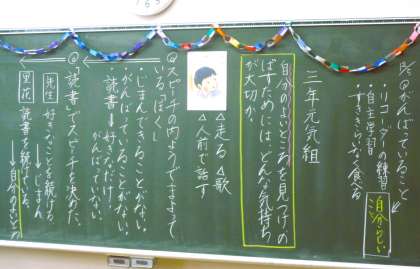 がんばっていること
・リコーダーの練習
・自主学習
・すききらいなく食べる
自分らしい
三年元気組
自分のよいところを見つけの
ばすためには、どんな気持ち
が大切か。
△走る △歌
△人前で話す
◎スピーチの内ようでまよって
いる、ぼく
・じまんできることがない。
がんばっていることがない。
読書→好きなだけ、
がんばっていない。
◎「読書」でスピーチを決めた。
先生 好きなことを続ける。
→じまん
里花 読書を続けている。
→自分のよいところ